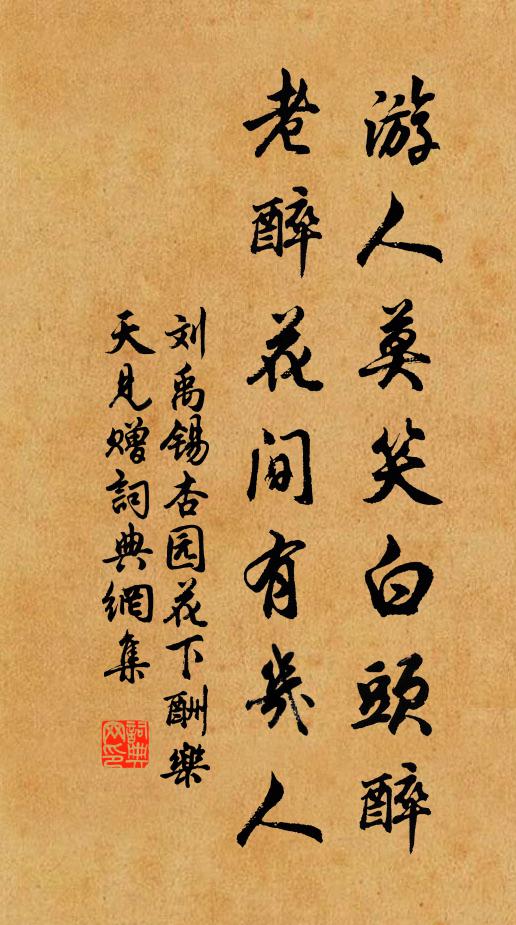 游人莫笑白頭醉
老醉花间有幾人
刘禹锡杏园花下酬樂
天見赠詞典網集
詞典
网印